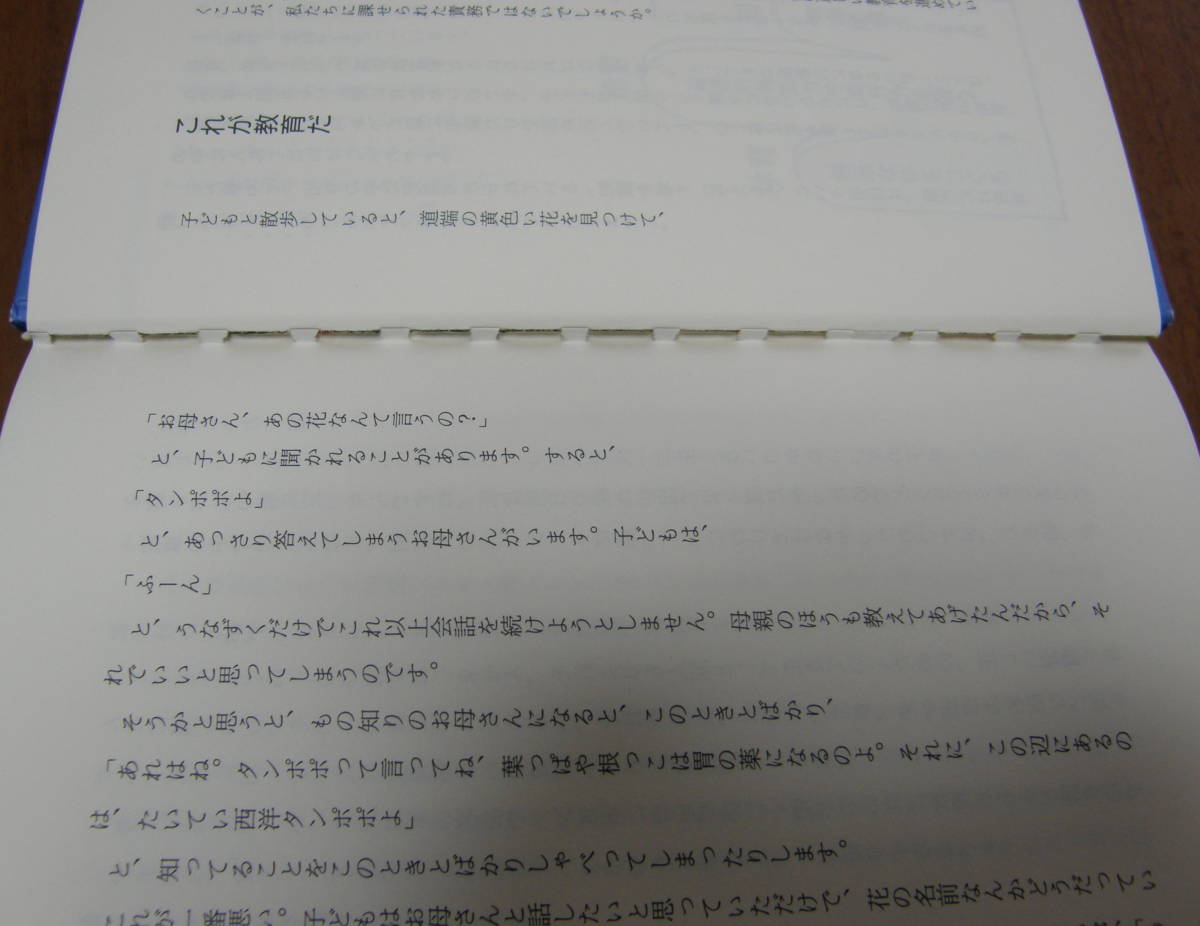 くことが、私たちに課せられた責務ではないでしょうか。
これが教育だ
子どもと散歩していると、道端の黄色い花を見つけて、
「お母さん、あの花なんて言うの?」
と、子どもに聞かれることがあります。すると、
「タンポポよ」
と、あっさり答えてしまうお母さんがいます。子どもは、
「ふーん」
と、うなずくだけでこれ以上会話を続けようとしません。母親のほうも教えてあげたんだから、そ
れでいいと思ってしまうのです。
そうかと思うと、もの知りのお母さんになると、このときとばかり、
「あれはね。タンポポって言ってね、葉っぱや根っこは胃の薬になるのよ。それに、この辺にあるの
は、たいてい西洋タンポポよ」
と、知ってることをこのときとばかりしゃべってしまったりします。
これが一番悪い。子どもはお母さんと話したいと思っていただけで、花の名前なんかどうだってい